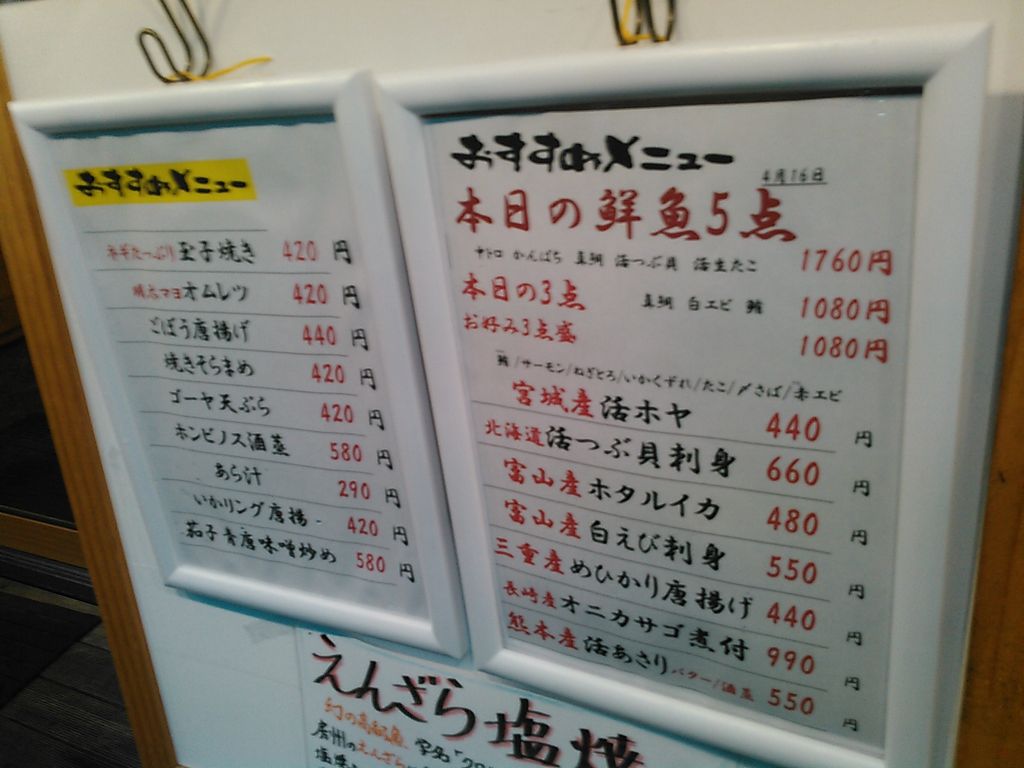 おすすめメニュー
ネギたっぷり玉子焼き 420 円
明太マヨオムレツ 420 円
ごぼう唐揚げ 440 円
焼きそらまめ 420 円
ゴーヤ天ぷら 420 円
ホンビノス酒蒸 580 円
あら汁 290 円
いかリング唐揚 420 円
茄子青唐味噌炒め 580 円
おすすめメニュー
4月16日
本日の鮮魚5点
中トロ かんぱち 真鯛 活つぶ貝 活生たこ 1760円
本日の3点 真鯛 白エビ 鮪 1080円
お好み3点盛 1080円
鮪/サーモン/ねぎとろ/いかくずれ/たこ/〆さば/赤エビ
宮城産活ホヤ 440 円
北海道活つぶ貝刺身 660 円
富山産ホタルイカ 480 円
富山産白えび刺身 550 円
三重産めひかり唐揚げ 440 円
長崎産オニカサゴ煮付 990 円
熊本産活あさりバター/酒蒸 550 円
えんざら塩焼
幻の高級魚、学名
房州のえんざら
塩焼